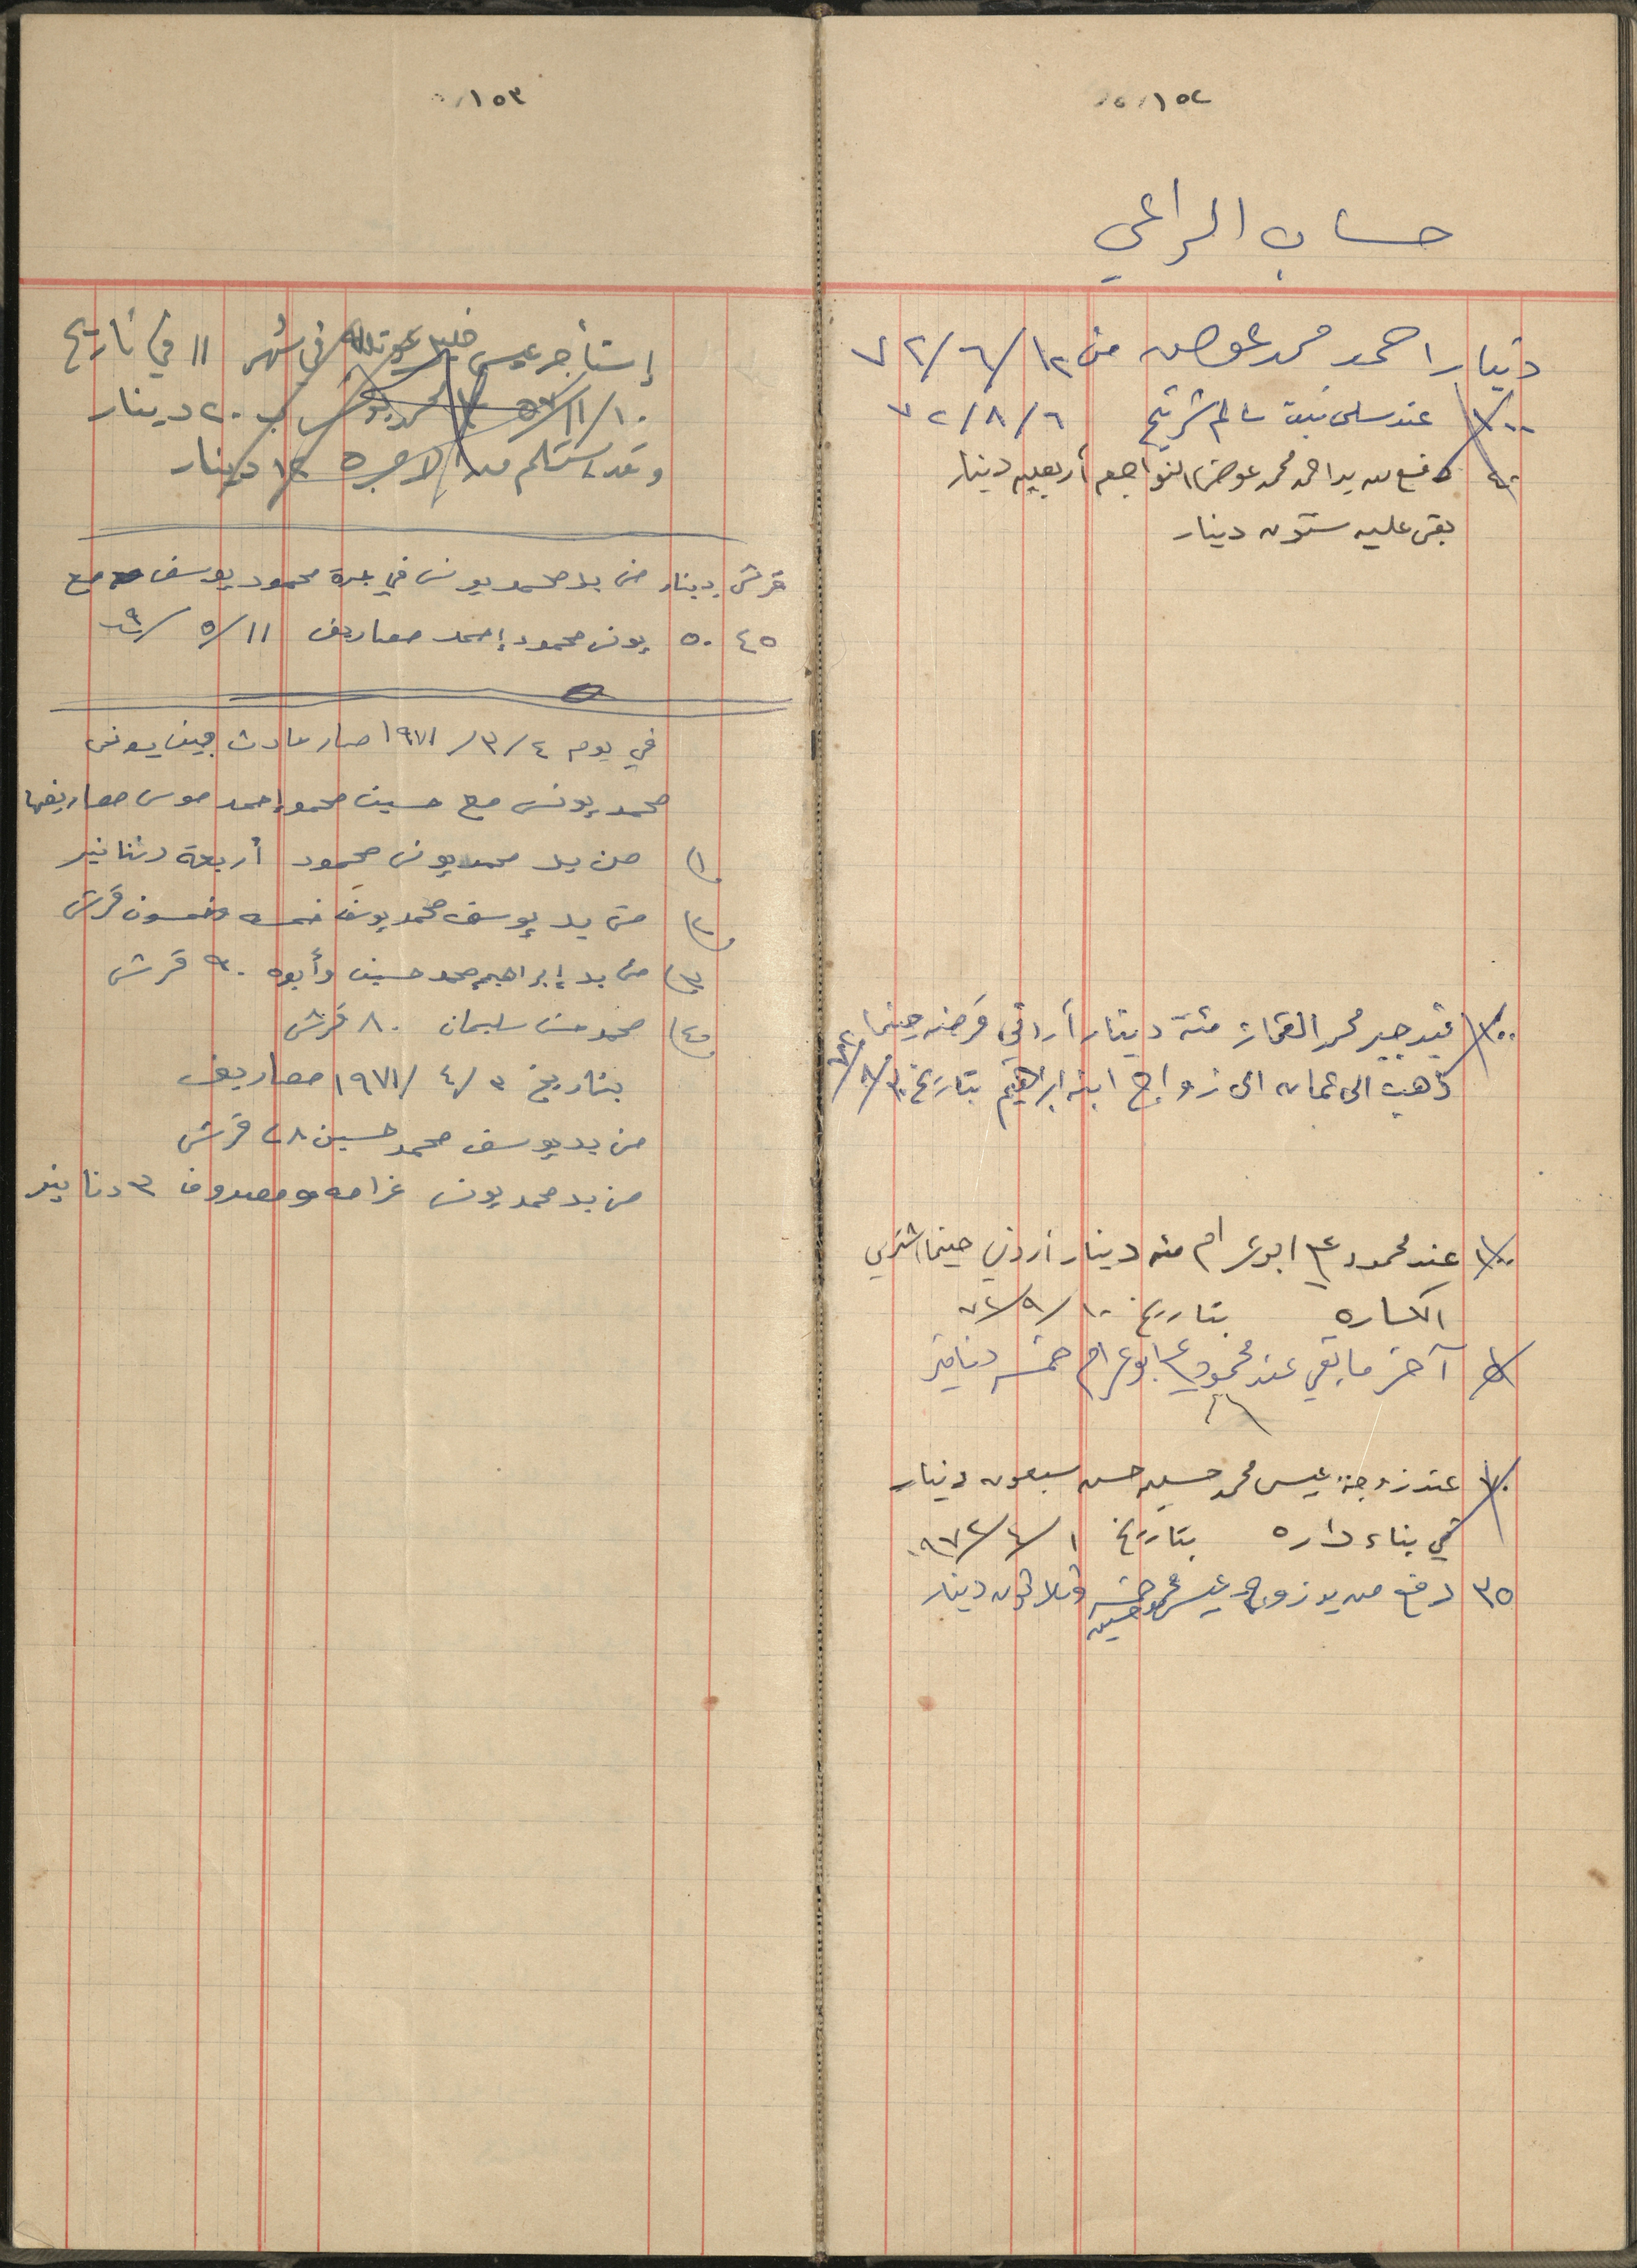 ١٥٢
حساب الراعي
دينار احمد محمد عوض من ١٢/٦/٧٢
١٠٠ عند سلمى بنت سالم شريتح ٦/٨/٧٢
٤٠ دفع من يد احمد محمد عوض النواجعه أربعين دينار
بقى عليه ستون دينار
١٠٠ عند جبر محمد القماز مئة دينار أردني قرضه حينما
ذهب الى عمان الى زواج ابنه ابراهيم بتاريخ
١٠٠ عند محمود ابو عرام مئه دينار أردني حينما اشترى
الكساره بتاريخ ١٠/٩/٧٢
٥ آخر ما بقي عند محمود ابو عرام خمسه دنانير
٧٠ عند زوجة عيسى محمد حسين حسن سبعون دينار
في بناء داره بتاريخ
٣٥ دفع من يد زوجة عيسى محمد حسين خمسه وثلاثون دينار
١٥٣
إستأجر عيسى خليل في شهر ١١ في تاريخ
١٠/١١ محمد يونس ب ٢٠ دينار
وقد استلم من الاجره ١٢ دينار
قرش دينار من يد محمد يونس في محمود يوسف مع
٤٥ ٥٠ يونس محمود إحمد مصاريف ١١/٥/٦٩
في يوم ٤/٣/١٩٧١ صار حادث بين يونس
محمد يونس مع حسين محمود إحمد موسى مصاريفها
١) من يد محمد يونس محمود أربعة دنانير
٢) من يد يوسف محمد يوسف خمسه وخمسون قرش
٣) من يد إبراهيم محمد حسين وأبوه ٩٠ قرش
٤) محمد حسن سليمان ٨٠ قرش
بتاريخ ٣/٤/١٩٧١ مصاريف
من يد يوسف محمد حسين ٢٨ قرش
من يد محمد يونس غرامه ومصروف ٣ دنانير